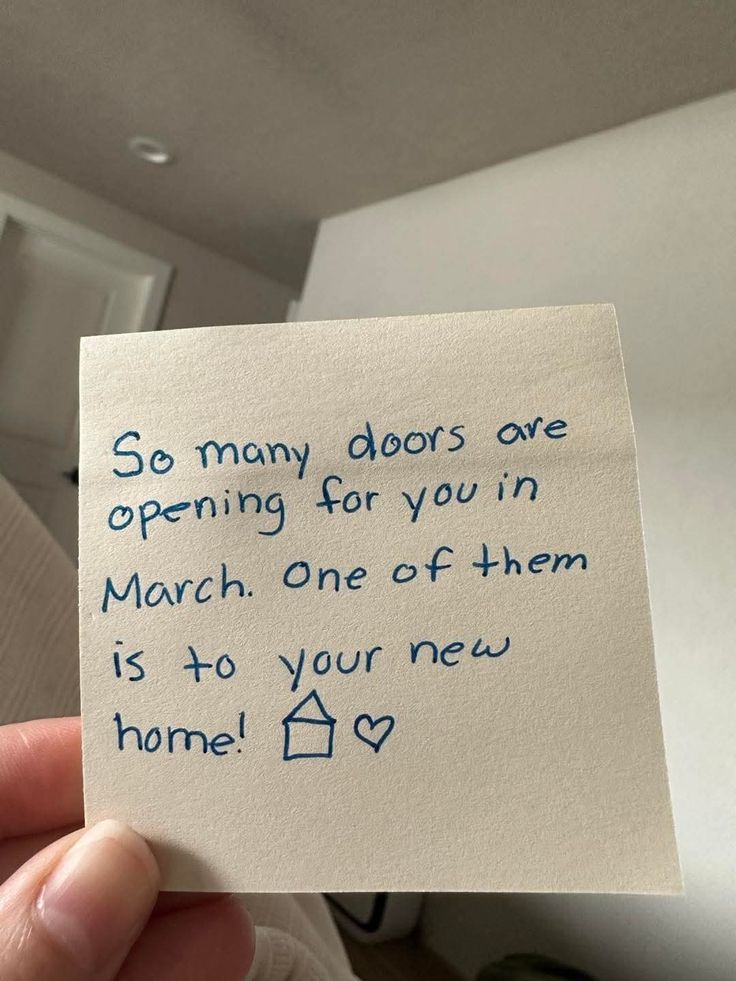 So many doors are
opening for you in
March. One of them
is to your new
home!